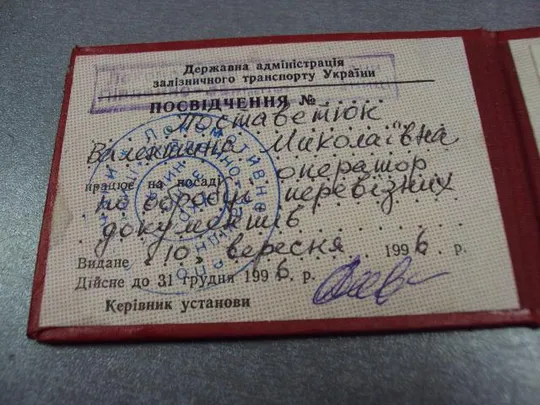 Державна адміністрація
залізничного транспорту України
ПОСВІДЧЕННЯ №
Поставетюк
Валентина Миколаївна
працює на посаді оператор
по обробці перевізних
документів
Видане 10 вересня 1996 р.
Дійсне до 31 грудня 1996 р.
Керівник установи